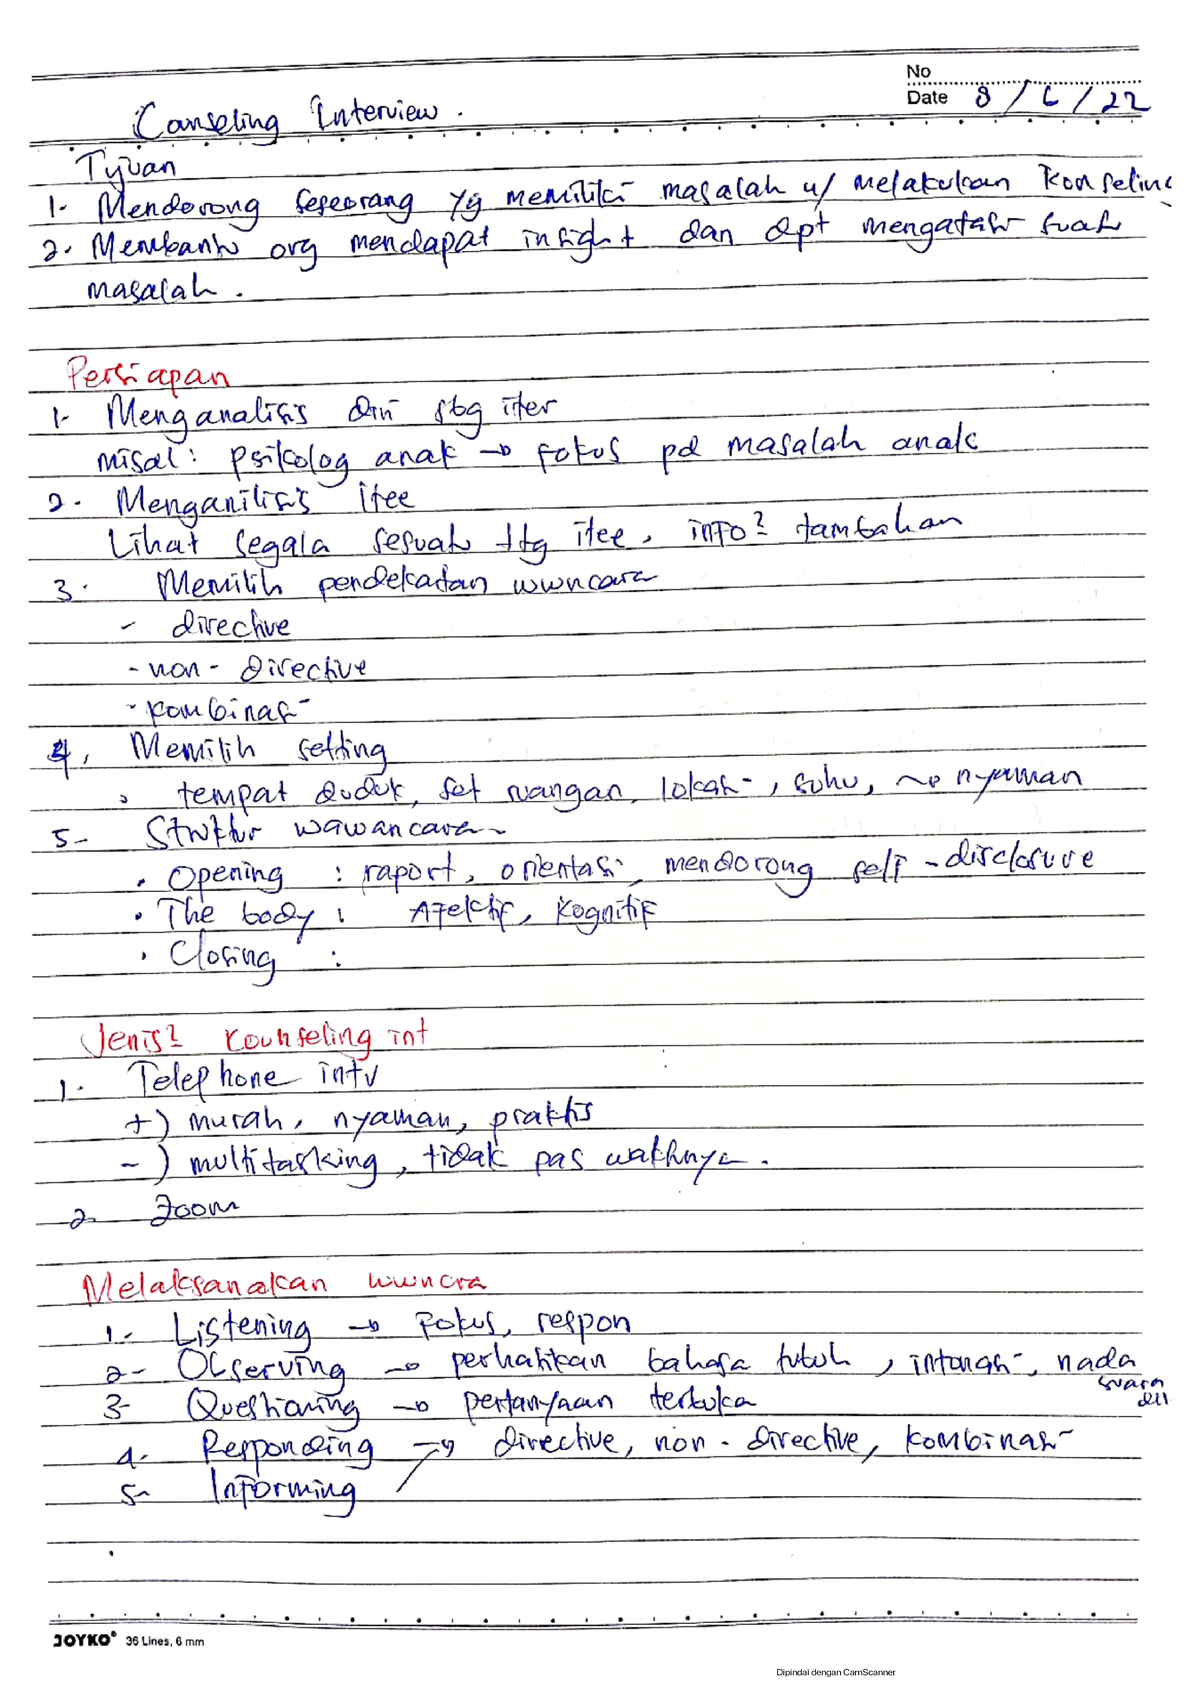 No
Date 8/6/22
Counseling Interview.
Tujuan
1. Mendorong seseorang yg memiliki masalah u/ melakukan konseling
2. Membantu org mendapat insight dan dpt mengatasi suatu
masalah.
Persiapan
1. Menganalisis diri sbg iter
misal: psikolog anak → fokus pd masalah anak
2. Menganilisis itee
Lihat segala sesuatu ttg itee, info² tambahan
3. Memilih pendekatan wwncara
- directive
- non-directive
- kombinasi
4. Memilih setting
• tempat duduk, set ruangan, lokasi, suhu, → nyaman
5. Struktur wawancara
• Opening : raport, orientasi, mendorong self-disclosure
• The body : Afektif, Kognitif
• Closing :
Jenis² kounseling int
1. Telephone intv
+) murah, nyaman, praktis
-) multitasking, tidak pas waktunya.
2. Zoom
Melaksanakan wwncra
1. Listening → Fokus, respon
2. Observing → perhatikan bahasa tubuh, intonasi, nada
suara
dll
3. Questioning → pertanyaan terbuka
4. Responding → directive, non-directive, kombinasi
5. Informing
JOYKO® 36 Lines, 6 mm
Dipindai dengan CamScanner